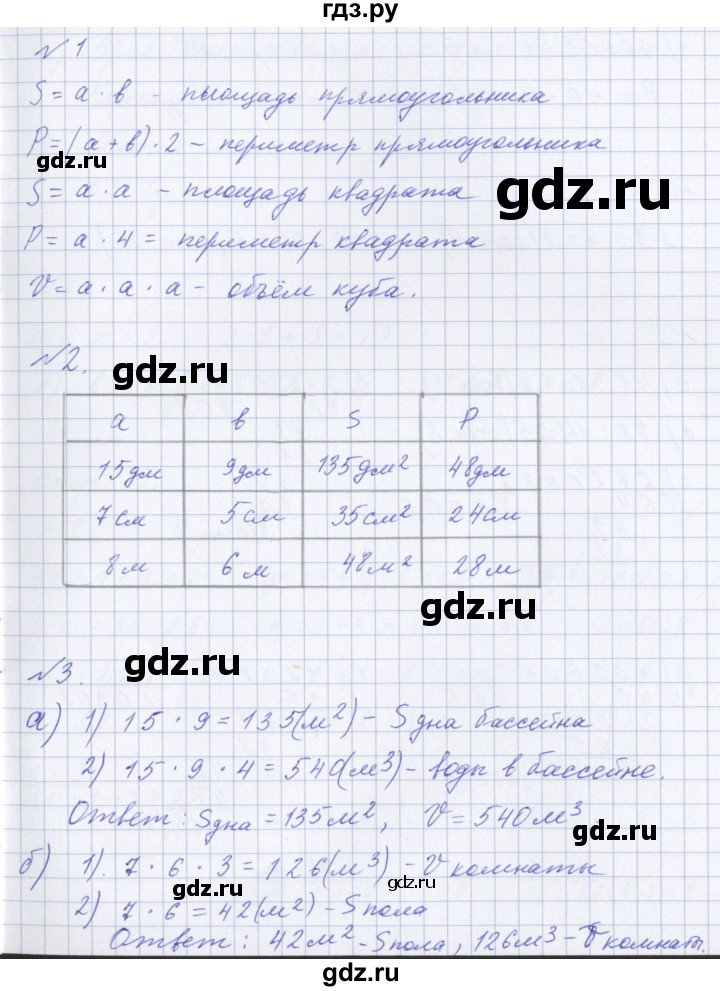 гдз.ру
№1
S = a · b - площадь прямоугольника
P = (a + b) · 2 - периметр прямоугольника
gdz.ru
gdz.ru
S = a · a - площадь квадрата
P = a · 4 = периметр квадрата
V = a · a · a - объём куба.
№2.
gdz.ru
a b S P
15дм 9дм 135дм² 48дм
7см 5см 35см² 24см
8м 6м 48м² 28м
gdz.ru
№3.
gdz.ru
а) 1) 15 · 9 = 135(м²) - S дна бассейна
2) 15 · 9 · 4 = 540(м³) - воды в бассейне.
Ответ: Sдна = 135м², V = 540м³
gdz.ru
б) 1). 7 · 6 · 3 = 126(м³) - V комнаты
gdz.ru
gdz.ru
2) 7 · 6 = 42(м²) - S пола
Ответ: 42м² - Sпола, 126м³ - V комнаты.
gdz.ru